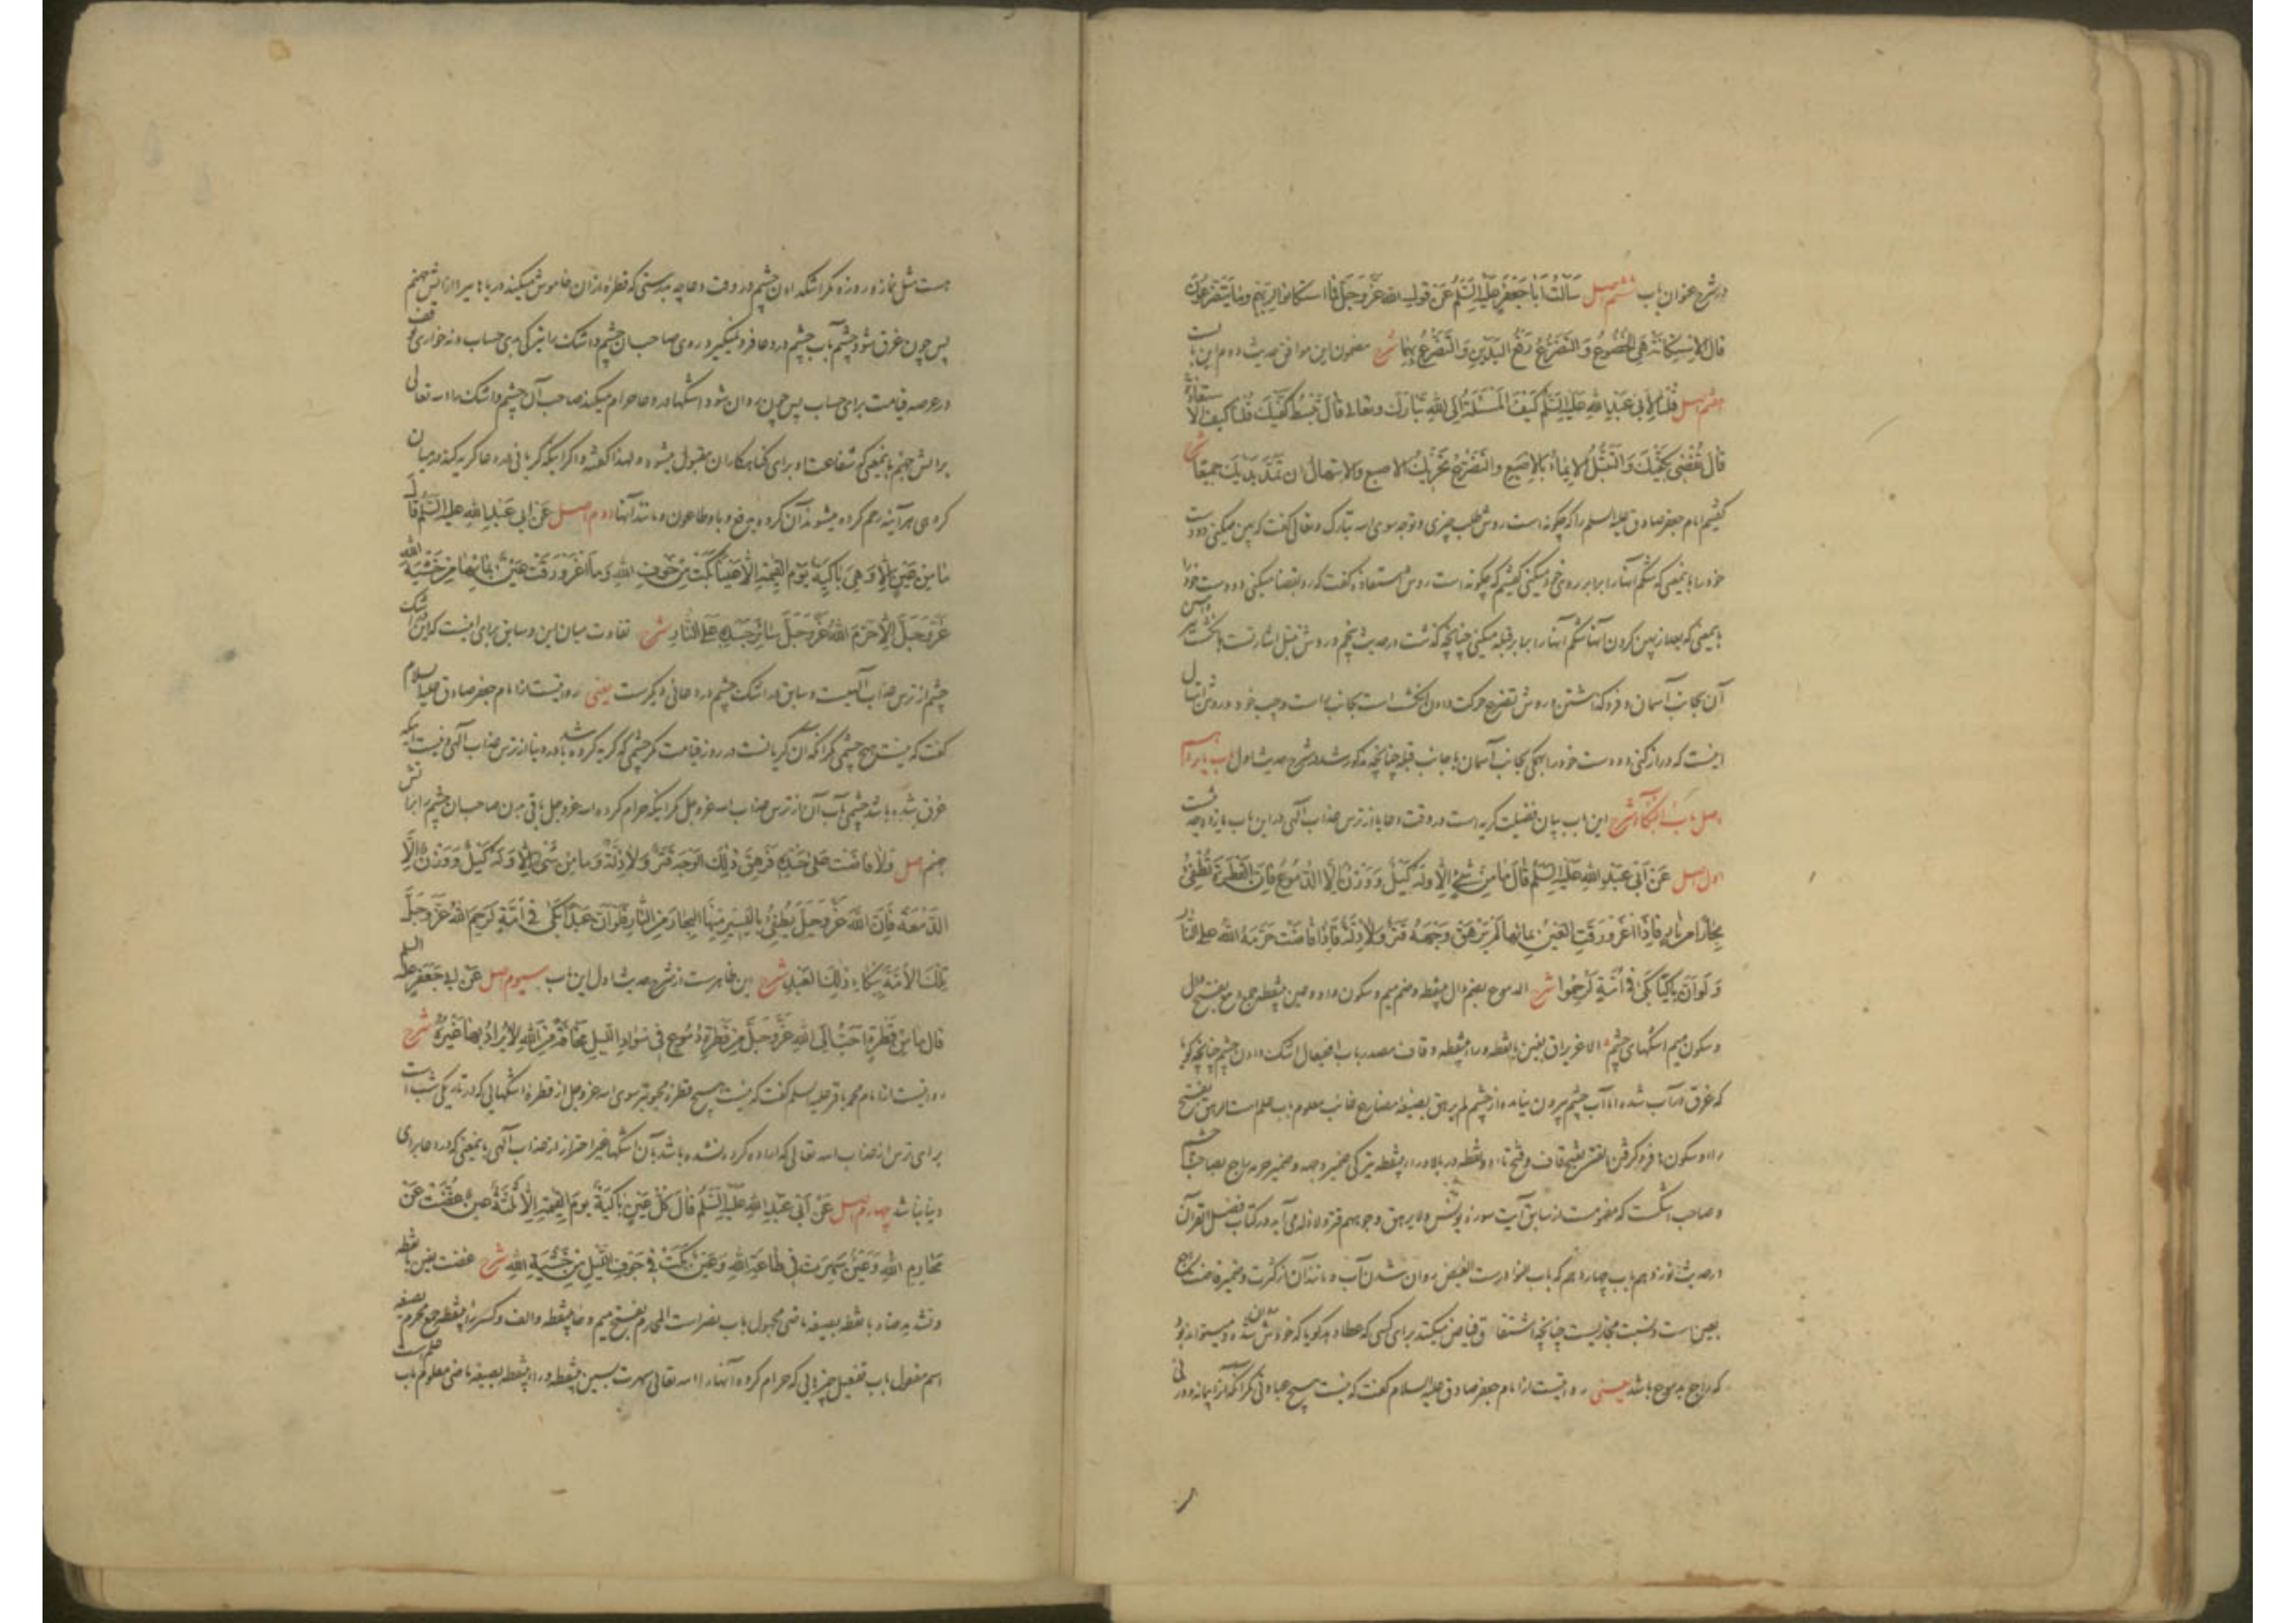 در شرح عنوان باب ششم اصل سَأَلْتُ أَبَا جَعْفَرٍ عَلَيْهِ السَّلَمُ عَنْ قَوْلِ اللهِ عَزَّوَجَلَّ فَمَا اسْتَكَانُوا لِرَبِّهِمْ وَمَا يَتَضَرَّعُونَ
قَالَ الاِسْتِكَانَةُ هِيَ الْخُضُوعُ وَ التَّضَرُّعُ رَفْعُ الْيَدَيْنِ وَالتَّضَرُّعُ بِهِمَا شرح مضمون این موافق حدیث دوم این باب است
هفتم اصل قُلْنَا لِأَبِي عَبْدِ اللهِ عَلَيْهِ السَّلَمُ كَيْفَ الْمَسْئَلَةُ إِلَى اللهِ تَبَارَكَ وتعالى قَالَ تَبْسُطُ كَفَّيْكَ قُلْنَا كَيْفَ الاستعاذة
قَالَ تُفْضِي بِكَفَّيْكَ وَالتَّبَتُّلُ الإِيمَاءُ بِالإِصْبَعِ والتَّضَرُّعُ تَحْرِيكُ الاصبع والابتهال ان تَمُدَّ يَدَيْكَ جميعًا شرح
گفتیم امام جعفر صادق علیه السلم را که چگونه است روش طلب چیزی و توجه سوی الله تبارک و تعالی گفت که پهن میکنی دو دست
خود را باینمعنی که شکم آنها را برابر روی خود میکنی گفتیم که چگونه است روش استعاذه گفت که رو بفضا میکنی دو دست خود را
باینمعنی که بعد از پهن کردن آنها شکم آنها را برابر قبله میکنی چنانچه گذشت در حدیث پنجم و روش تبتل اشارتست بانگشت
آن بجانب آسمان و فرو گذاشتن و روش تضرع حرکت دادن انگشت است بجانب راست و چپ خود و روش ابتهال
اینست که دراز کنی دو دست خود را همگی بجانب آسمان یا جانب قبله چنانچه مذکور شد در شرح حدیث اول باب پانزدهم
اصل بَابُ الْبُكَاءِ شرح این باب بیان فضیلت گریه است در وقت دعا یا از ترس عذاب آلهی در این باب یازده حدیث است
اول اصل عَنْ أَبِي عَبْدِ اللهِ عَلَيْهِ السَّلَمُ قَالَ مَا مِنْ شَيْءٍ إِلَّا وَلَهُ كَيْلٌ وَوَزْنٌ إِلَّا الدُّمُوعُ فَإِنَّ الْقَطْرَةَ تُطْفِئُ
بِحَارًا مِنْ نَارٍ فَإِذَا اغْرَوْرَقَتِ الْعَيْنُ بِمَائِهَا لَمْ يَرْهَقْ وَجْهَهُ قَتَرٌ وَلَا ذِلَّةٌ فَإِذَا فَاضَتْ حَرَّمَهُ اللهُ عَلَى النَّارِ
وَلَوْ أَنَّ بَاكِيًا بَكَى فِي أُمَّةٍ لَرُحِمُوا شرح الدموع بضم دال بینقطه و ضم میم و سکون واو و عین بینقطه جمع دمع بفتح دال
و سکون میم اشکهای چشم الاغریراق بغین بانقطه و راء بینقطه و قاف مصدر باب افعیعال اشک دادن چشم چنانچه گویا
که غرق در آب شده اما آب چشم بیرون نیامده از چشم لم یرهق بصیغه مضارع غائب معلوم باب علم است الرهق بفتح
راء و سکون ها فرو گرفتن القتر بفتح قاف و فتح تاء دو نقطه در بالا و راء بینقطه تیرگی ضمیر وجهه و ضمیر حرمه راجع بصاحب چشم
و صاحب اشکست که مفهومست از سابق آیت سوره یونس ولا یرهق وجوههم قتر ولا ذلة می آید در کتاب فضل القرآن
در حدیث نوزدهم باب چهاردهم که باب النوادرست الفیض روان شدن آب و مانند آن از کثرت و ضمیر فاضت راجع
بعین است و نسبت مجازیست چنانچه اشتقاق فیاض میکنند برای کسی که عطا دهد گویا که خودش روان شده و میتواند بود
که راجع بدموع باشد یعنی روایتست از امام جعفر صادق علیه السلام گفت که نیست هیچ عبادتی مگر آنکه آنرا پیمانه و وزنی
هست مثل نماز و روزه مگر اشک دادن چشم در وقت دعا چه بدرستی که قطره از آن خاموش میکند دریاها را از آتش جهنم
پس چون غرق شود چشم بآب چشم در دعا فرو نمیگیرد روی صاحب آن چشم و اشک را تیرگی برای حساب و نه خواری توقف
در عرصه قیامت برای حساب پس چون روان شود اشکها در دعا حرام میکند صاحب آن چشم و اشک را الله تعالی
بر آتش جهنم باینمعنی که شفاعت او برای گناهکاران مقبول میشود و لهذا گفته و اگر اینکه گریانی در دعا گریه کند در میان
گروهی هر آینه رحم کرده میشوند آن گروه برفع وبا و طاعون و مانند آنها دوم اصل عَنْ أَبِي عَبْدِ اللهِ عليه السَّلَمُ قَالَ
مَا مِنْ عَيْنٍ إِلَّا وَهِيَ بَاكِيَةٌ يَوْمَ الْقِيَمَةِ إِلَّا عَيْنًا بَكَتْ مِنْ خَوْفِ اللهِ وَمَا اغْرَوْرَقَتْ عَيْنٌ بِمَائِهَا مِنْ خَشْيَةِ اللهِ
عَزَّوَجَلَّ إِلَّا حَرَّمَ اللهُ عَزَّوَجَلَّ سَائِرَ جَسَدِهِ عَلَى النَّارِ شرح تفاوت میان این و سابق برای اینست که این در اشک
چشم از ترس عذاب آلهیست و سابق در اشک چشم در دعائی دیگرست یعنی روایتست از امام جعفر صادق علیه السلام
گفت که نیست هیچ چشمی مگر آنکه آن گریانست در روز قیامت مگر چشمی که گریه کرده باشد در دنیا از ترس عذاب آلهی و نیست اینکه
غرق شده باشد چشمی بآب آن از ترس عذاب الله عزوجل مگر اینکه حرام کرده الله عزوجل باقی بدن صاحب آن چشم را بر آتش
جهنم اصل وَلَا فَاضَتْ عَلَى خَدِّهِ فَرَهِقَ ذٰلِكَ الْوَجْهَ قَتَرٌ وَلَا ذِلَّةٌ وَمَا مِنْ شَيْءٍ إِلَّا وَلَهُ كَيْلٌ وَوَزْنٌ إِلَّا
الدَّمْعَةُ فَإِنَّ اللهَ عَزَّوَجَلَّ يُطْفِئُ بِالْيَسِيرِ مِنْهَا الْبِحَارَ مِنَ النَّارِ فَلَوْ أَنَّ عَبْدًا بَكَى فِي أُمَّةٍ لَرَحِمَ اللهُ عَزَّوَجَلَّ
تِلْكَ الْأُمَّةَ بِبُكَاءِ ذٰلِكَ الْعَبْدِ شرح این ظاهرست از شرح حدیث اول این باب سیوم اصل عَنْ أَبِي جَعْفَرٍ علیه السلم
قَالَ مَا مِنْ قَطْرَةٍ أَحَبُّ إِلَى اللهِ عَزَّوَجَلَّ مِنْ قَطْرَةِ دُمُوعٍ فِي سَوَادِ اللَّيْلِ مَخَافَةً مِنَ اللهِ لَا يُرَادُ بِهَا غَيْرُهُ شرح
روایتست از امام محمد باقر علیه السلم گفت که نیست هیچ قطره محبوبتر سوی الله عزوجل از قطره اشکهایی که در تاریکی شب است
برای ترس از عذاب الله تعالی که اراده کرده نشده باشد بآن اشکها غیر احتراز از عذاب آلهی باینمعنی که در دعا برای
دنیا نباشد چهارم اصل عَنْ أَبِي عَبْدِ اللهِ عَلَيْهِ السَّلَمُ قَالَ كُلُّ عَيْنٍ بَاكِيَةٌ يَوْمَ الْقِيَمَةِ إِلَّا ثَلٰثَةً عَيْنٌ غُضَّتْ عَنْ
مَحَارِمِ اللهِ وَعَيْنٌ سَهِرَتْ فِي طَاعَةِ اللهِ وَعَيْنٌ بَكَتْ فِي جَوْفِ اللَّيْلِ مِنْ خَشْيَةِ اللهِ شرح غضت بغین بانقطه
و تشدید ضاد بانقطه بصیغه ماضی مجهول باب نصر است المحارم بفتح میم و حاء بینقطه و الف و کسر راء بینقطه جمع محرم بصیغه
اسم مفعول باب تفعیل چیزهایی که حرام کرده آنها را الله تعالی سهرت بسین بینقطه و راء بینقطه بصیغه ماضی معلوم باب علم است